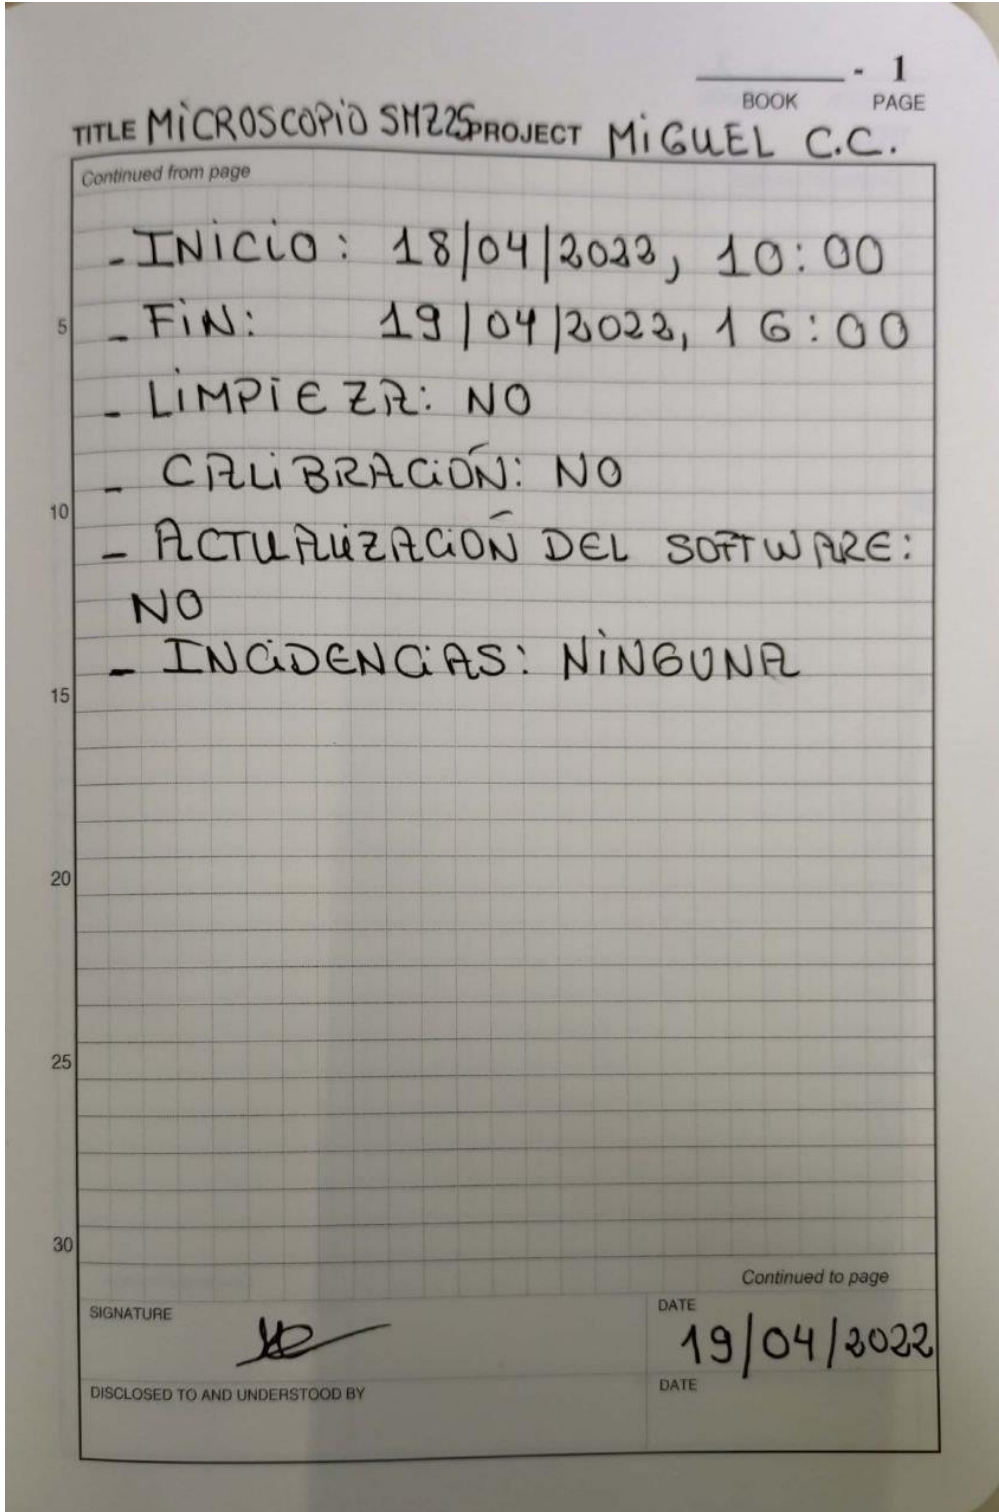 - 1
BOOK PAGE
TITLE MiCROSCOPiO SMZ25 PROJECT MiGUEL C.C.
Continued from page
- INiCiO: 18/04/2022, 10:00
5 - FiN: 19/04/2022, 16:00
- LiMPiEZA: NO
- CALiBRACiÓN: NO
10
- ACTUALiZACiÓN DEL SOFTWARE:
NO
- INCiDENCiAS: NiNGUNA
15
20
25
30
Continued to page
SIGNATURE DATE
19/04/2022
DISCLOSED TO AND UNDERSTOOD BY DATE